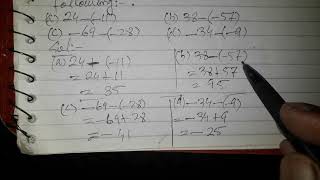 Following:-
(a) 24-(-11) (b) 38-(-57)
(c) -69-(-28) (d) -34-(-9)
Sol:-
(a) 24-(-11) (b) 38-(-57)
= 24+11 = 38+57
= 35 = 95
(c) -69-(-28) (d) -34-(-9)
= -69+28 = -34+9
= -41 = -25